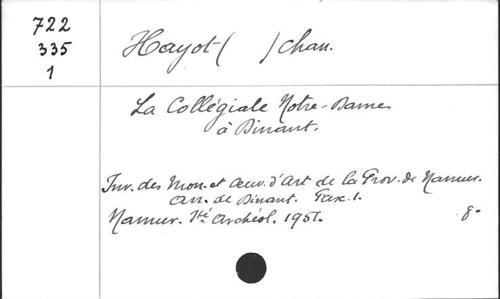 722
335
1
Hayot ( ) chan.
La Collégiale Notre-Dame
à Dinant.
Inv. des Mon. et Œuv. d'Art de la Prov. de Namur.
Arr. de Dinant. Fasc. 1.
Namur. Sté Archéol. 1951. 8°